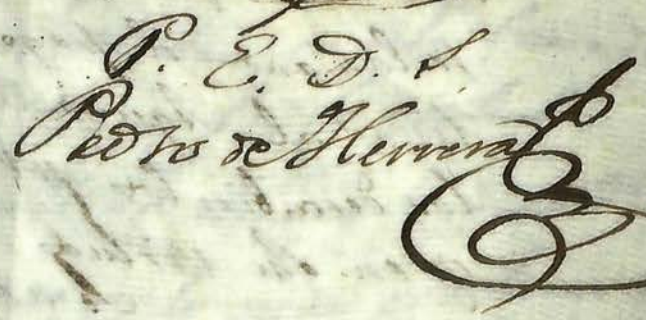 P. E. D. S.
Pedro de Herrera